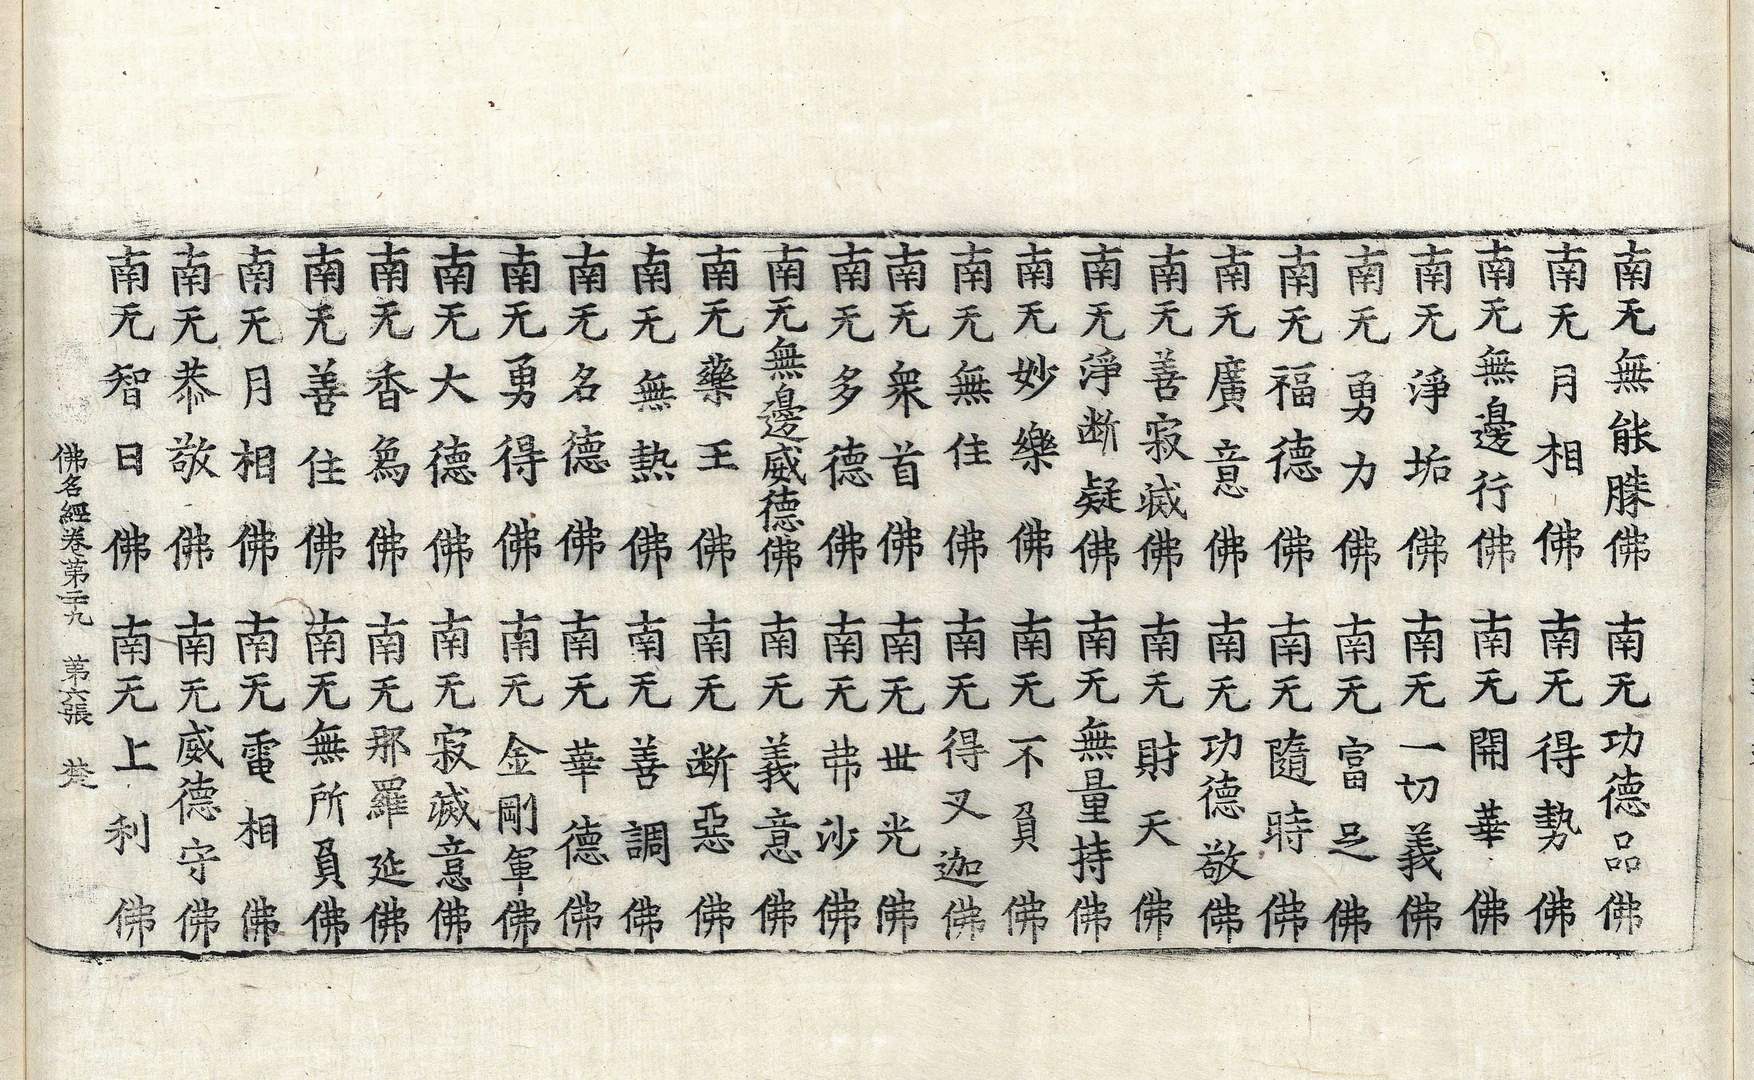 南无無能勝佛　南无功德品佛
南无月相佛　南无得勢佛
南无無邊行佛　南无開華佛
南无淨垢佛　南无一切義佛
南无勇力佛　南无富足佛
南无福德佛　南无隨時佛
南无廣意佛　南无功德敬佛
南无善寂滅佛　南无財天佛
南无淨断疑佛　南无無量持佛
南无妙樂佛　南无不負佛
南无無住佛　南无得叉迦佛
南无衆首佛　南无世光佛
南无多德佛　南无弗沙佛
南无無邊威德佛　南无義意佛
南无藥王佛　南无断惡佛
南无無熱佛　南无善調佛
南无名德佛　南无華德佛
南无勇得佛　南无金剛軍佛
南无大德佛　南无寂滅意佛
南无香爲佛　南无那羅延佛
南无善住佛　南无無所負佛
南无月相佛　南无電相佛
南无恭敬佛　南无威德守佛
南无智日佛　南无上利佛
佛名經卷第二九　第六張　楚